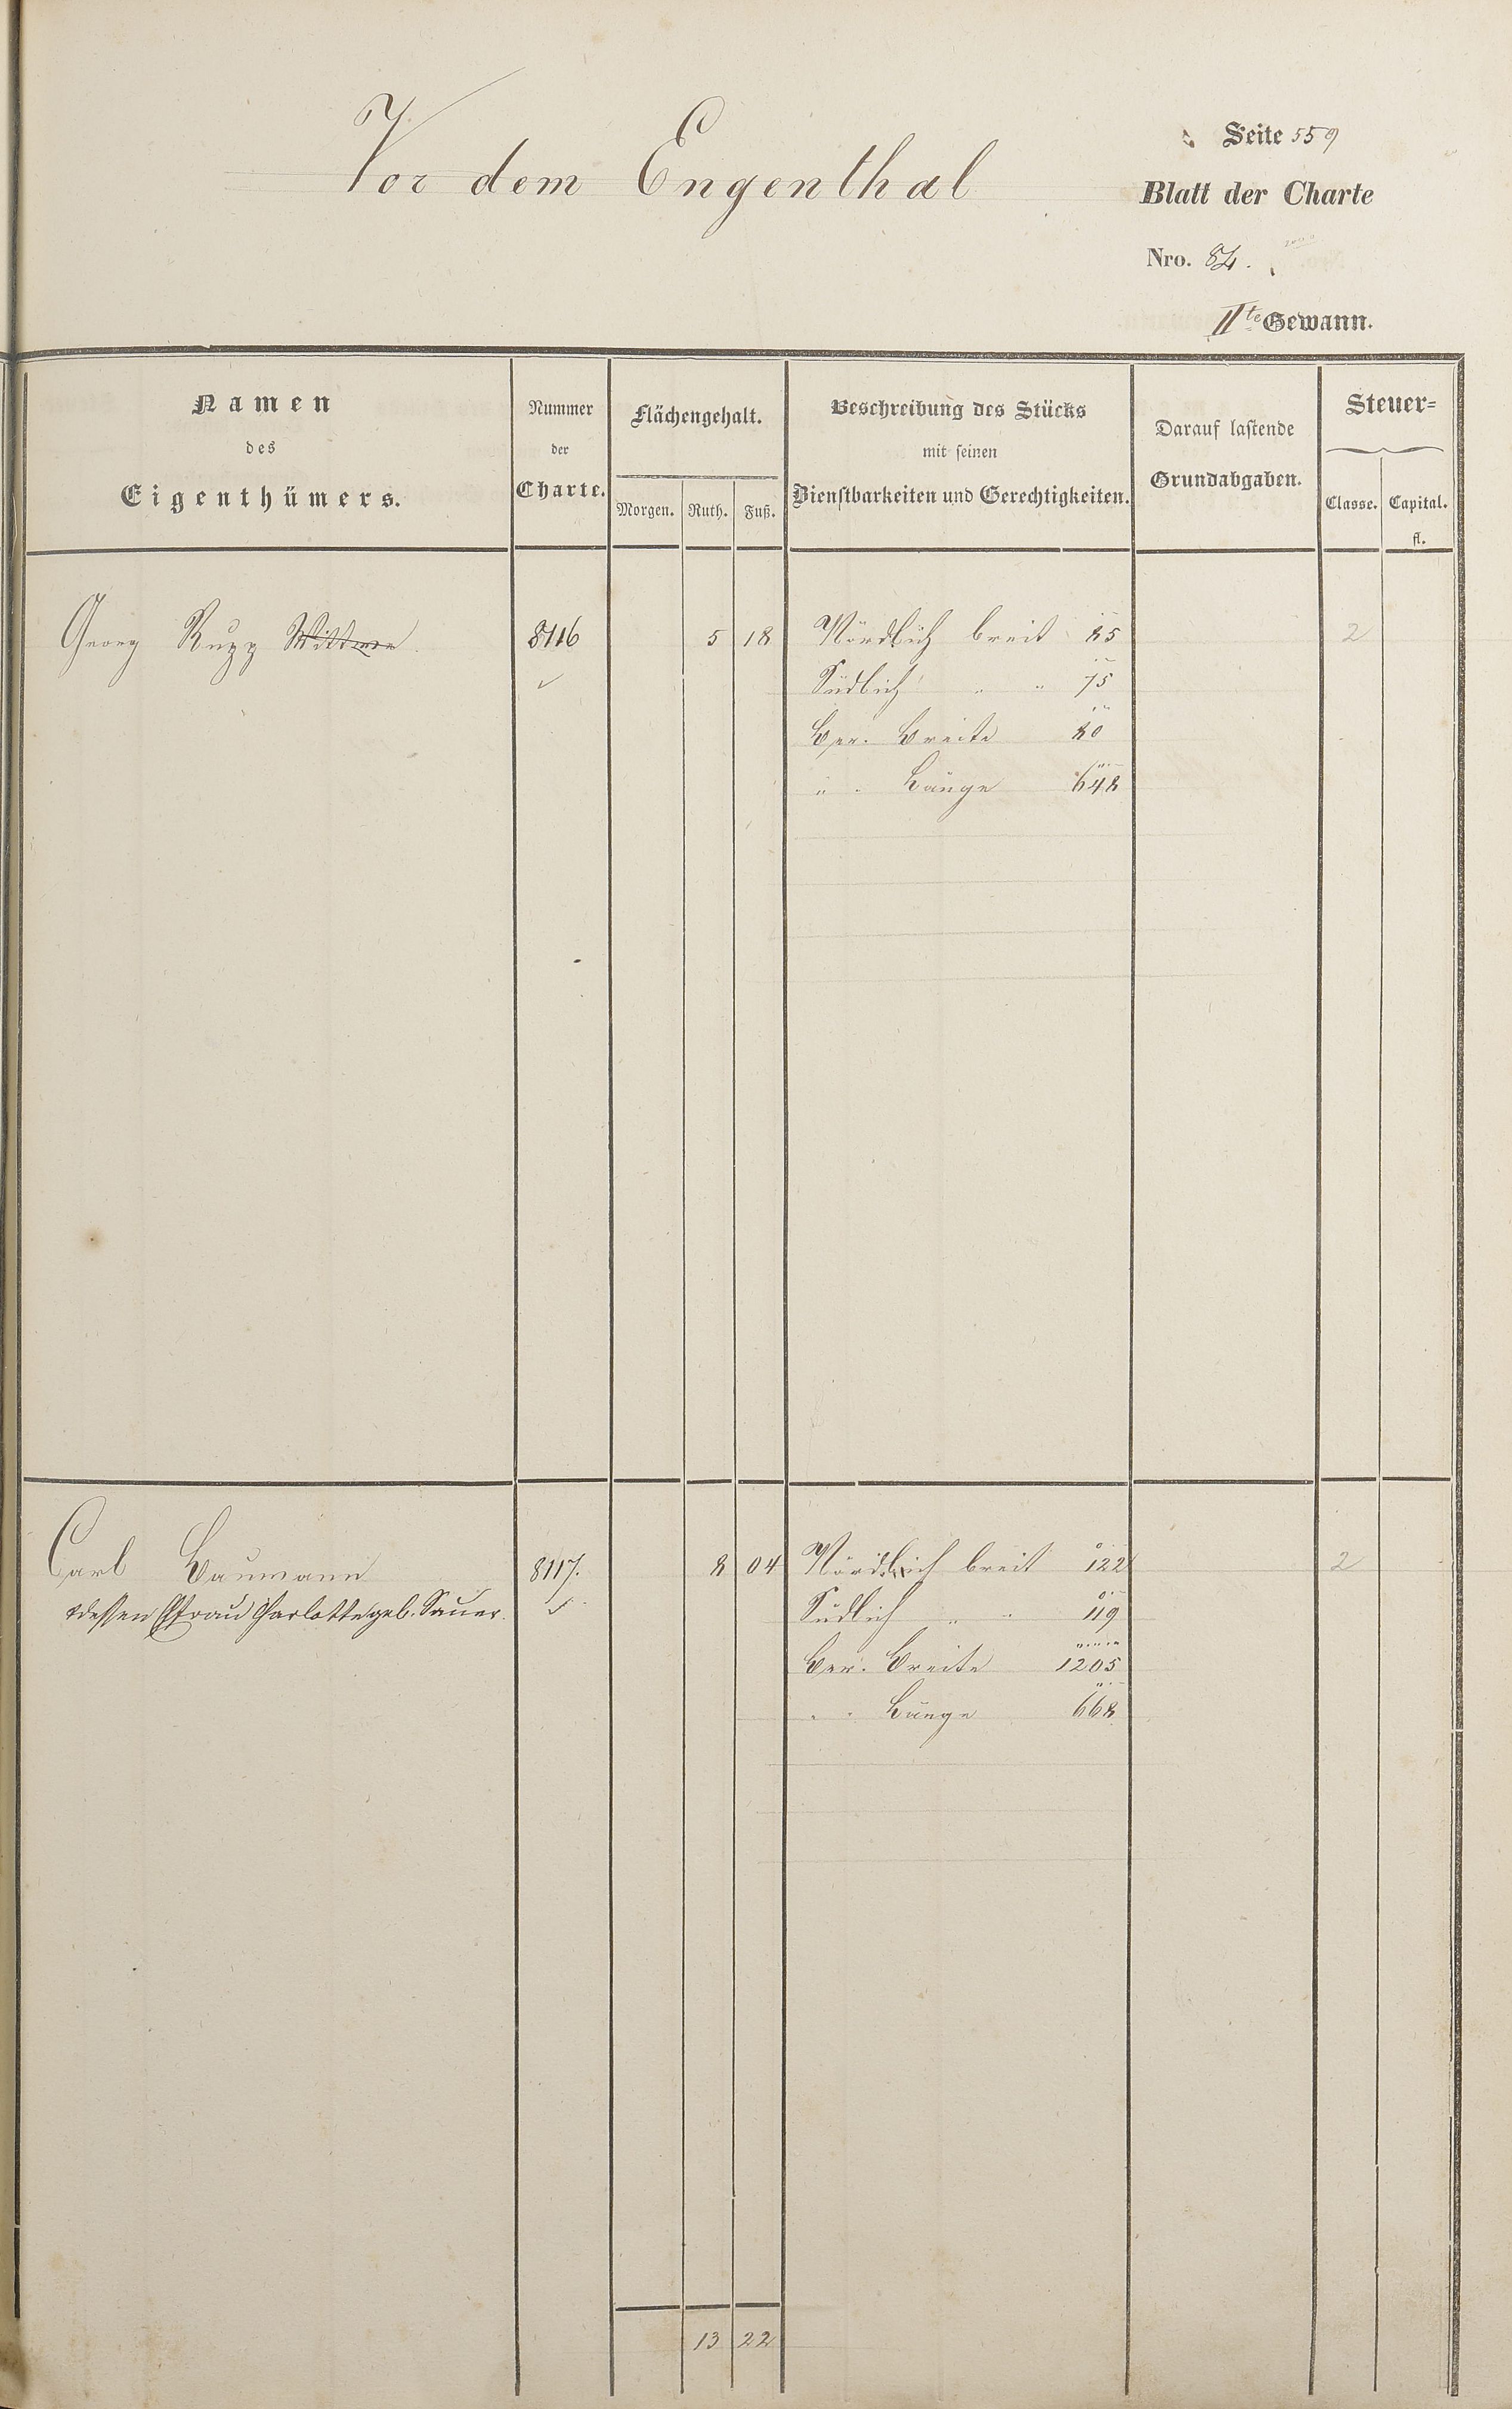 Vor dem Engenthal
Seite 559
Blatt der Charte
Nro. 84.
IIte Gewann.
Namen
des
Eigenthümers.
Nummer
der
Charte.
Flächengehalt.
Morgen. Ruth. Fuß.
Beschreibung des Stücks
mit seinen
Dienstbarkeiten und Gerechtigkeiten.
Darauf lastende
Grundabgaben.
Steuer=
Classe. Capital.
fl.
Georg Rupp Wittwe 8116 5 18 Nördlich breit 85 2
Südlich " " 75
Ber. Breite 80
" " Länge 648
Carl Baumann 8117. 8 04 Nördlich breit 122 2
dessen Efrau Charlotte geb. Sauer. Südlich " " 119
Ber. Breite 1205
" " Länge 668
13 22